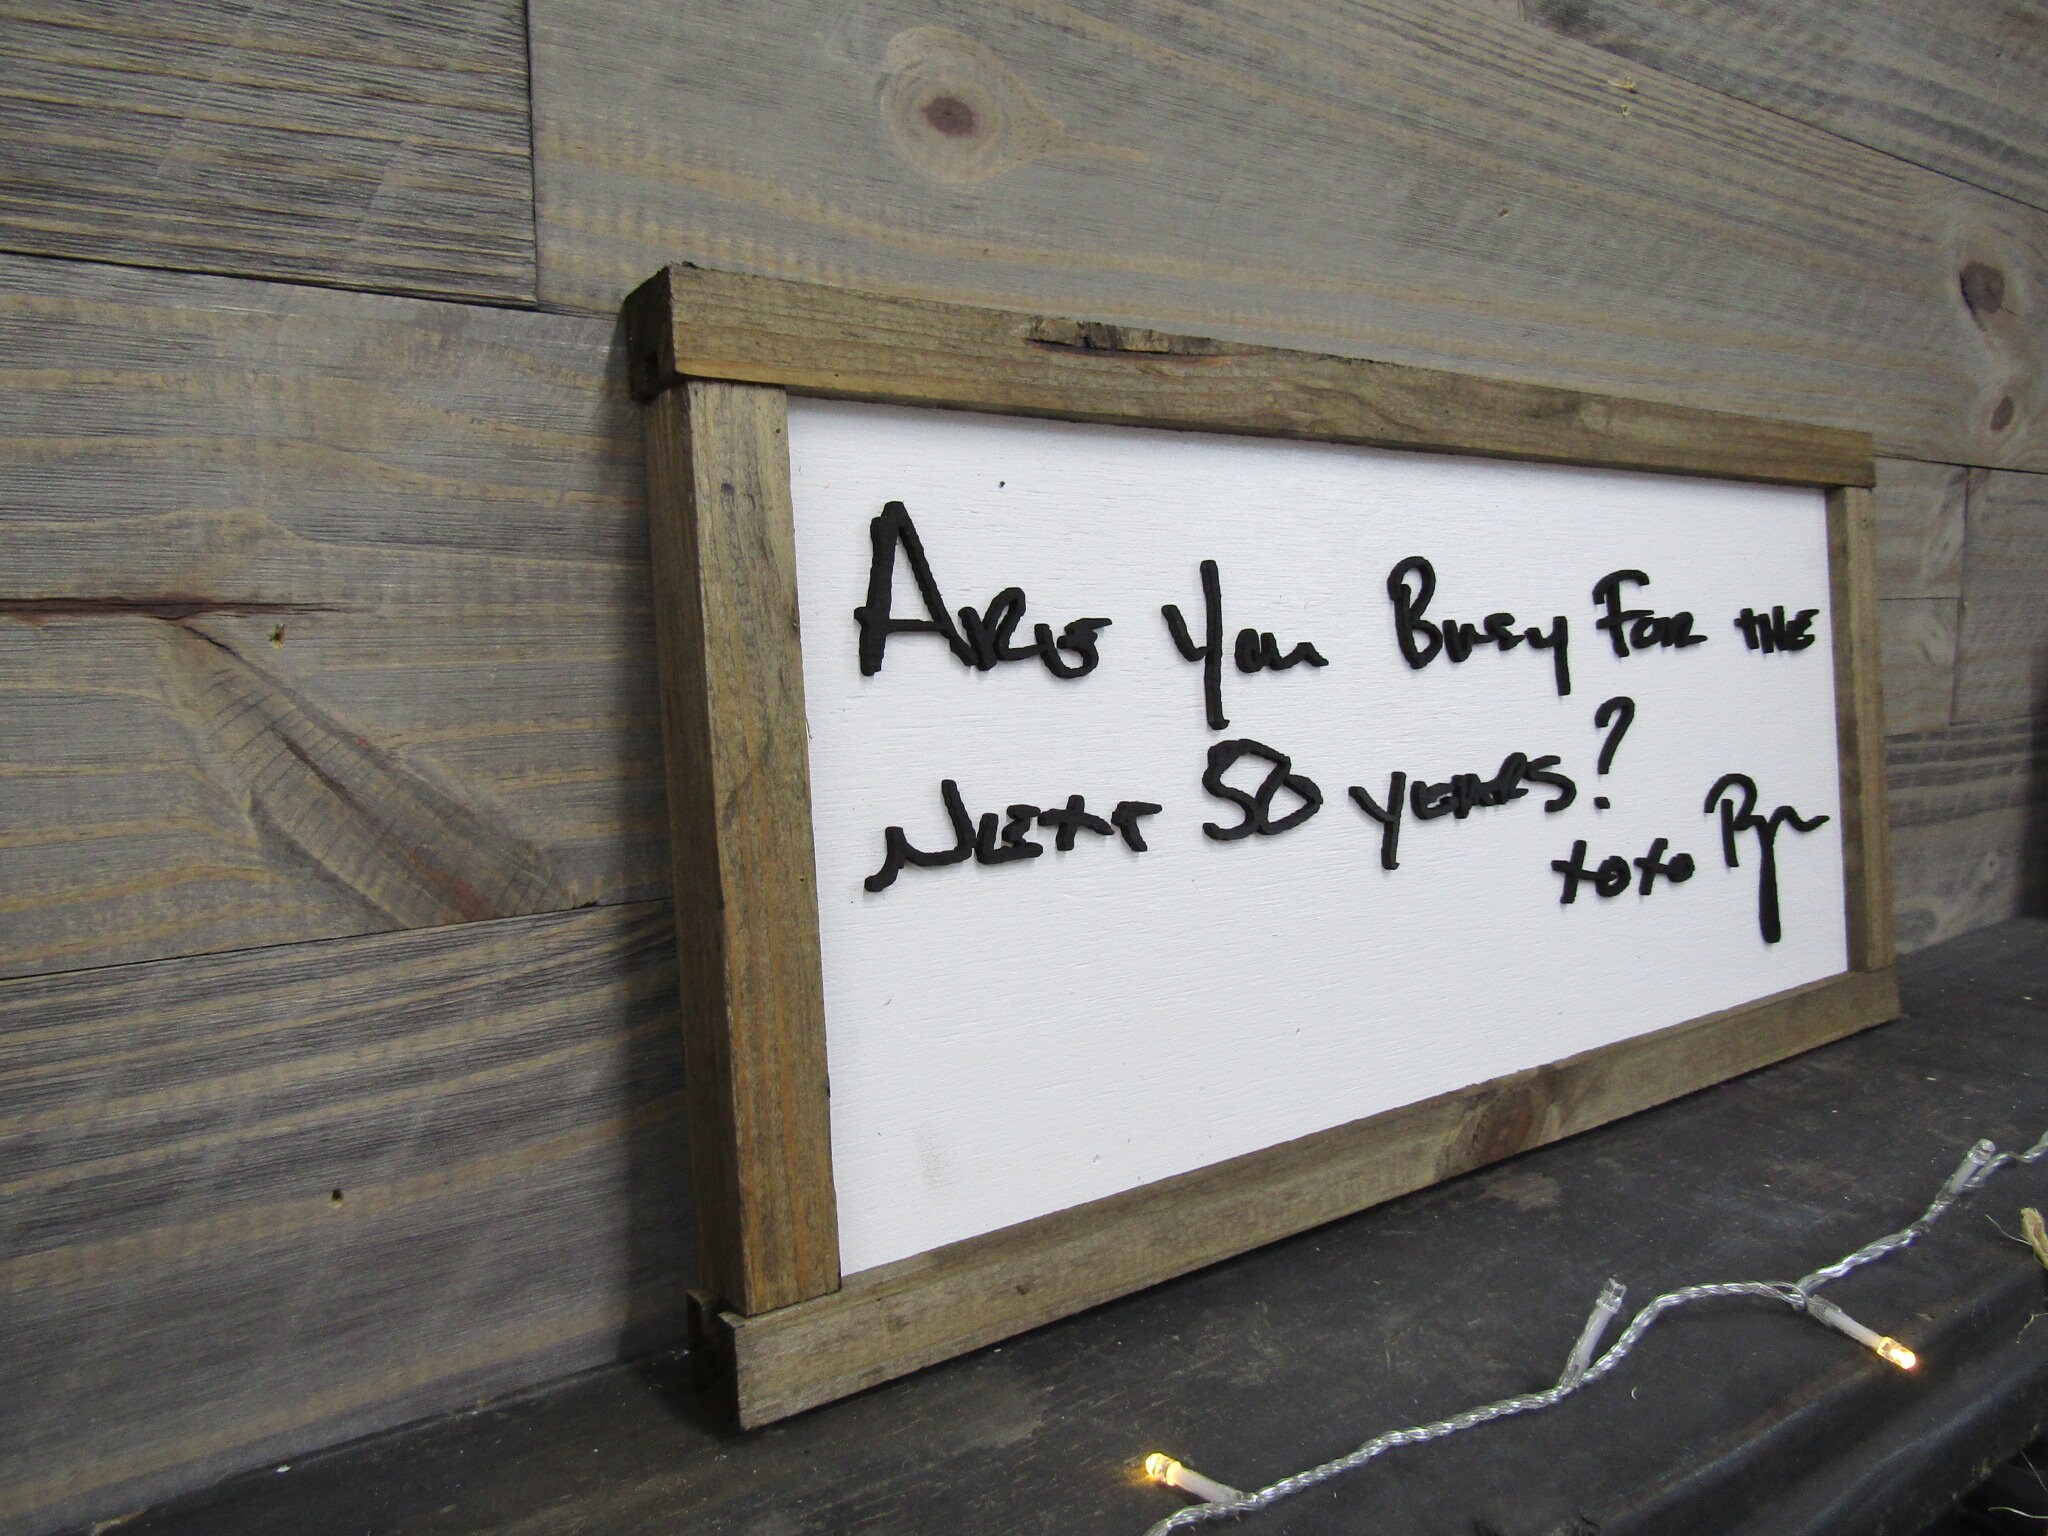 Are you Busy For the
Next 50 years?
xoxo Ryan